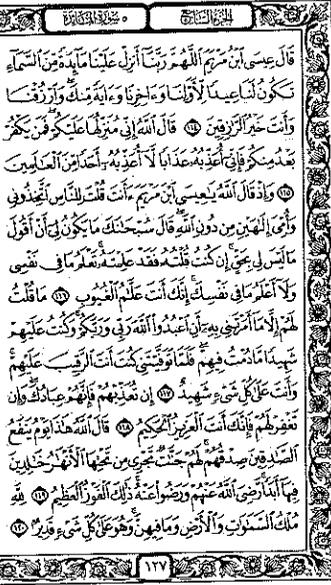 الجزء السابع ٥ سورة المائدة
قَالَ عِيسَى ٱبْنُ مَرْيَمَ ٱللَّهُمَّ رَبَّنَآ أَنزِلْ عَلَيْنَا مَآئِدَةً مِّنَ ٱلسَّمَآءِ
تَكُونُ لَنَا عِيدًا لِّأَوَّلِنَا وَءَاخِرِنَا وَءَايَةً مِّنكَ ۖ وَٱرْزُقْنَا
وَأَنتَ خَيْرُ ٱلرَّٰزِقِينَ ١١٤ قَالَ ٱللَّهُ إِنِّى مُنَزِّلُهَا عَلَيْكُمْ ۖ فَمَن يَكْفُرْ
بَعْدُ مِنكُمْ فَإِنِّىٓ أُعَذِّبُهُۥ عَذَابًا لَّآ أُعَذِّبُهُۥٓ أَحَدًا مِّنَ ٱلْعَٰلَمِينَ
١١٥ وَإِذْ قَالَ ٱللَّهُ يَٰعِيسَى ٱبْنَ مَرْيَمَ ءَأَنتَ قُلْتَ لِلنَّاسِ ٱتَّخِذُونِى
وَأُمِّىَ إِلَٰهَيْنِ مِن دُونِ ٱللَّهِ ۖ قَالَ سُبْحَٰنَكَ مَا يَكُونُ لِىٓ أَنْ أَقُولَ
مَا لَيْسَ لِى بِحَقٍّ ۚ إِن كُنتُ قُلْتُهُۥ فَقَدْ عَلِمْتَهُۥ ۚ تَعْلَمُ مَا فِى نَفْسِى
وَلَآ أَعْلَمُ مَا فِى نَفْسِكَ ۚ إِنَّكَ أَنتَ عَلَّٰمُ ٱلْغُيُوبِ ١١٦ مَا قُلْتُ
لَهُمْ إِلَّا مَآ أَمَرْتَنِى بِهِۦٓ أَنِ ٱعْبُدُوا۟ ٱللَّهَ رَبِّى وَرَبَّكُمْ ۚ وَكُنتُ عَلَيْهِمْ
شَهِيدًا مَّا دُمْتُ فِيهِمْ ۖ فَلَمَّا تَوَفَّيْتَنِى كُنتَ أَنتَ ٱلرَّقِيبَ عَلَيْهِمْ ۚ
وَأَنتَ عَلَىٰ كُلِّ شَىْءٍ شَهِيدٌ ١١٧ إِن تُعَذِّبْهُمْ فَإِنَّهُمْ عِبَادُكَ ۖ وَإِن
تَغْفِرْ لَهُمْ فَإِنَّكَ أَنتَ ٱلْعَزِيزُ ٱلْحَكِيمُ ١١٨ قَالَ ٱللَّهُ هَٰذَا يَوْمُ يَنفَعُ
ٱلصَّٰدِقِينَ صِدْقُهُمْ ۚ لَهُمْ جَنَّٰتٌ تَجْرِى مِن تَحْتِهَا ٱلْأَنْهَٰرُ خَٰلِدِينَ
فِيهَآ أَبَدًا ۚ رَّضِىَ ٱللَّهُ عَنْهُمْ وَرَضُوا۟ عَنْهُ ۚ ذَٰلِكَ ٱلْفَوْزُ ٱلْعَظِيمُ ١١٩ لِلَّهِ
مُلْكُ ٱلسَّمَٰوَٰتِ وَٱلْأَرْضِ وَمَا فِيهِنَّ ۚ وَهُوَ عَلَىٰ كُلِّ شَىْءٍ قَدِيرٌۢ ١٢٠
١٢٧